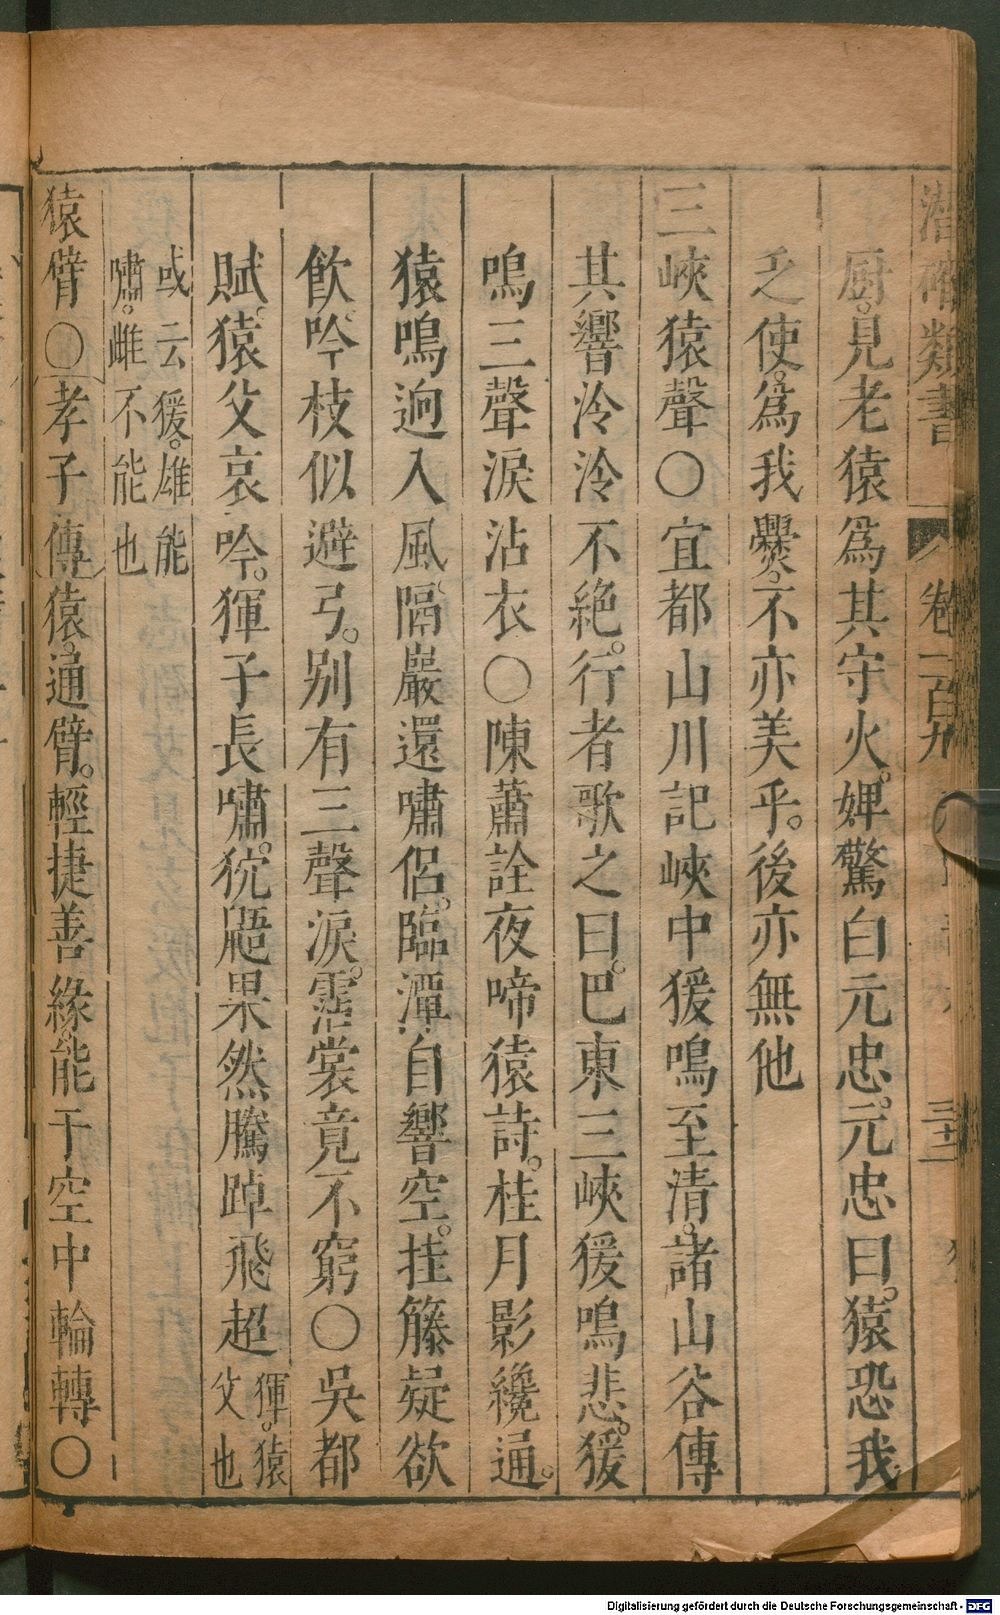 潛確類書 卷一百九 三十二
厨。見老猿爲其守火。婢驚白元忠。元忠曰。猿恐我
乏使。爲我爨。不亦美乎。後亦無他
三峽猿聲〇宜都山川記峽中猨鳴至清。諸山谷傳
其響泠泠不絕。行者歌之曰。巴東三峽猨鳴悲。猨
鳴三聲淚沾衣〇陳蕭詮夜啼猿詩。桂月影纔通。
猿鳴迥入風。隔巖還嘯侶。臨潭自響空。挂籐疑欲
飲。吟枝似避弓。别有三聲淚。霑裳竟不窮〇吳都
賦。猿父哀吟。獋子長嘯。狖鼯果然騰踔飛超獋。猿
父也
或云猨。雄能
嘯。雌不能也
猿臂〇孝子傳猿。通臂。輕捷善緣。能于空中輪轉〇
Digitalisierung gefördert durch die Deutsche Forschungsgemeinschaft - DFG